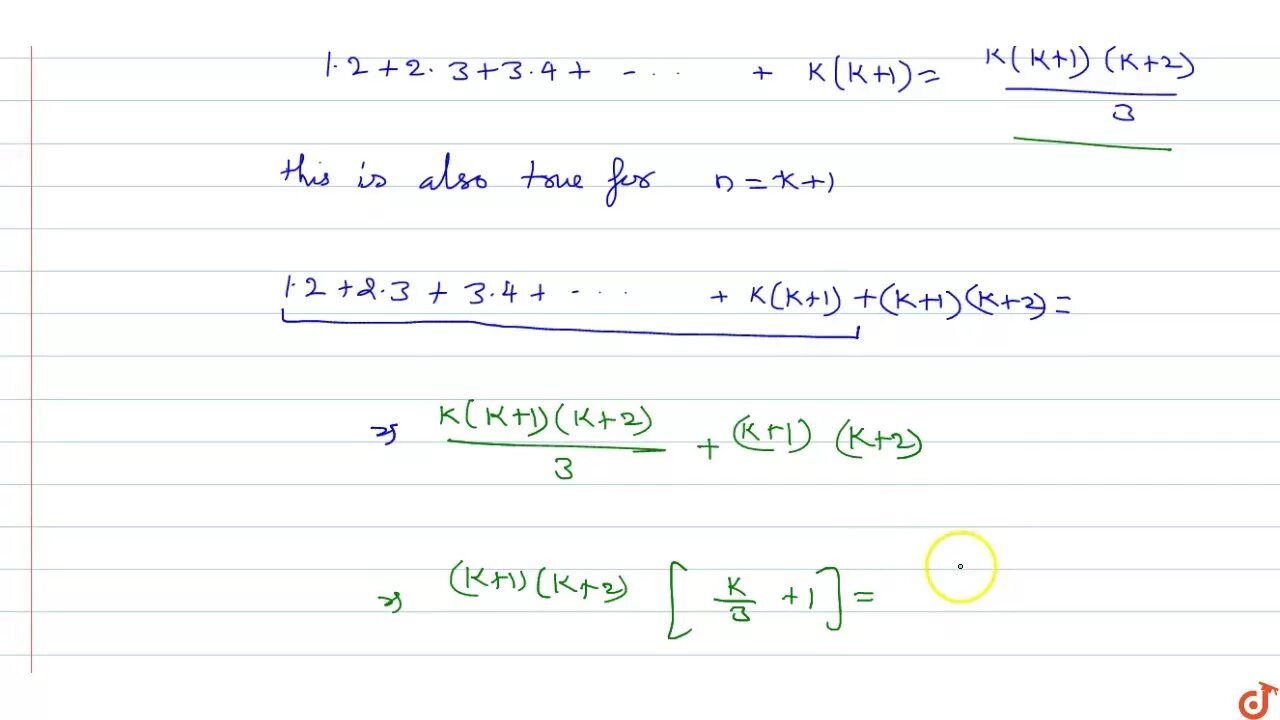 1·2 + 2·3 + 3·4 + - · · · + K(K+1) = K(K+1)(K+2)/3
this is also true for n = K+1
1·2 + 2·3 + 3·4 + - · · · + K(K+1) + (K+1)(K+2) =
⇒ K(K+1)(K+2)/3 + (K+1)(K+2)
⇒ (K+1)(K+2) [K/3 + 1] =